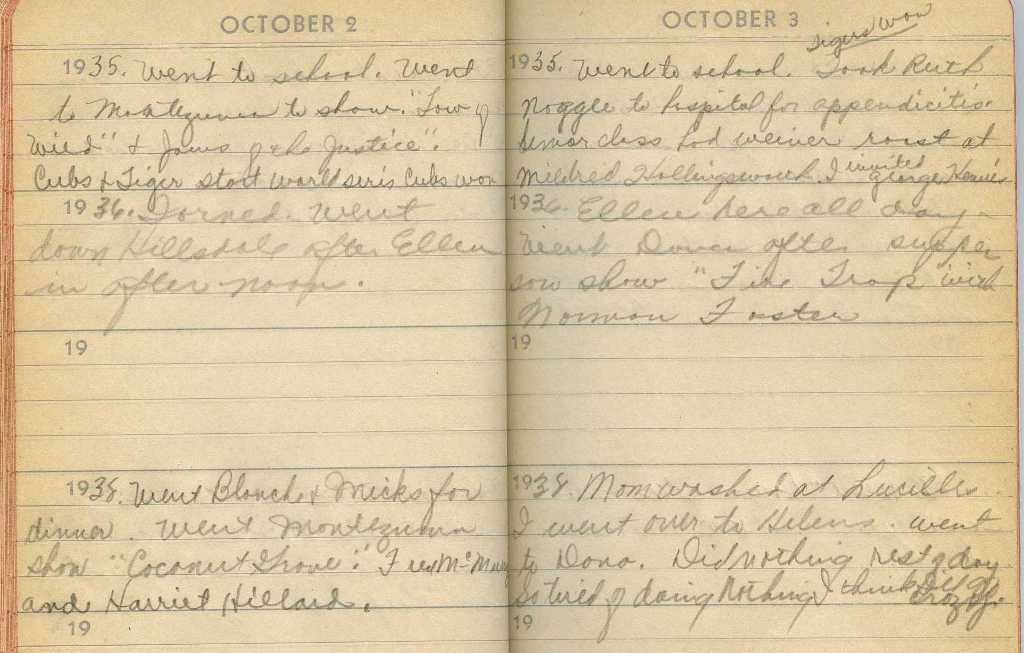 OCTOBER 2
1935. Went to school. Went
to Montezuma to show. "Law of
Wild" & Jaws of the Justice".
Cubs & Tiger start world seris Cubs won
1936. Went
down Hillsdale after Ellen
in after noon.
19
1938. Went Blanch & Micks for
dinner. Went Montezuma
show "Coconut Grove". Fred McMurry
and Harriet Hillard.
19
OCTOBER 3
Tigers won
1935. Went to school. Took Ruth
Noggle to hospital for appendicitis.
Senior class had weiner roast at
Mildred Hollingsworth. I invited George
1936. Ellen here all day.
Went Dana after supper
saw show "Fire Trap" with
Norman Foster
19
1938. Mom washed at Lucille
I went over to Helens. Went
to Dana. Did nothing rest of day
so tired of doing nothing I think I'll go
crazy.
19